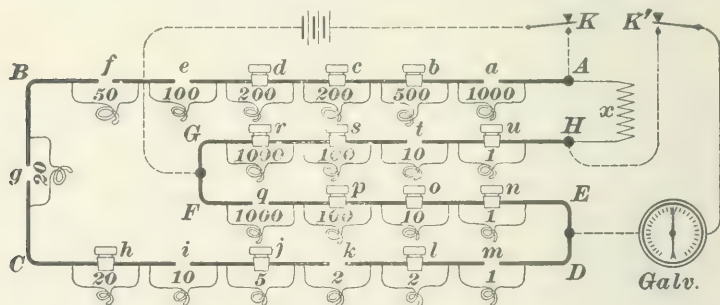 K K'
B f e d c b a A
50 100 200 200 500 1000
x
G r s t u H
1000 100 10 1
g 20
F q p o n E
1000 100 10 1
C h i j k l m D
20 10 5 2 2 1
Galv.